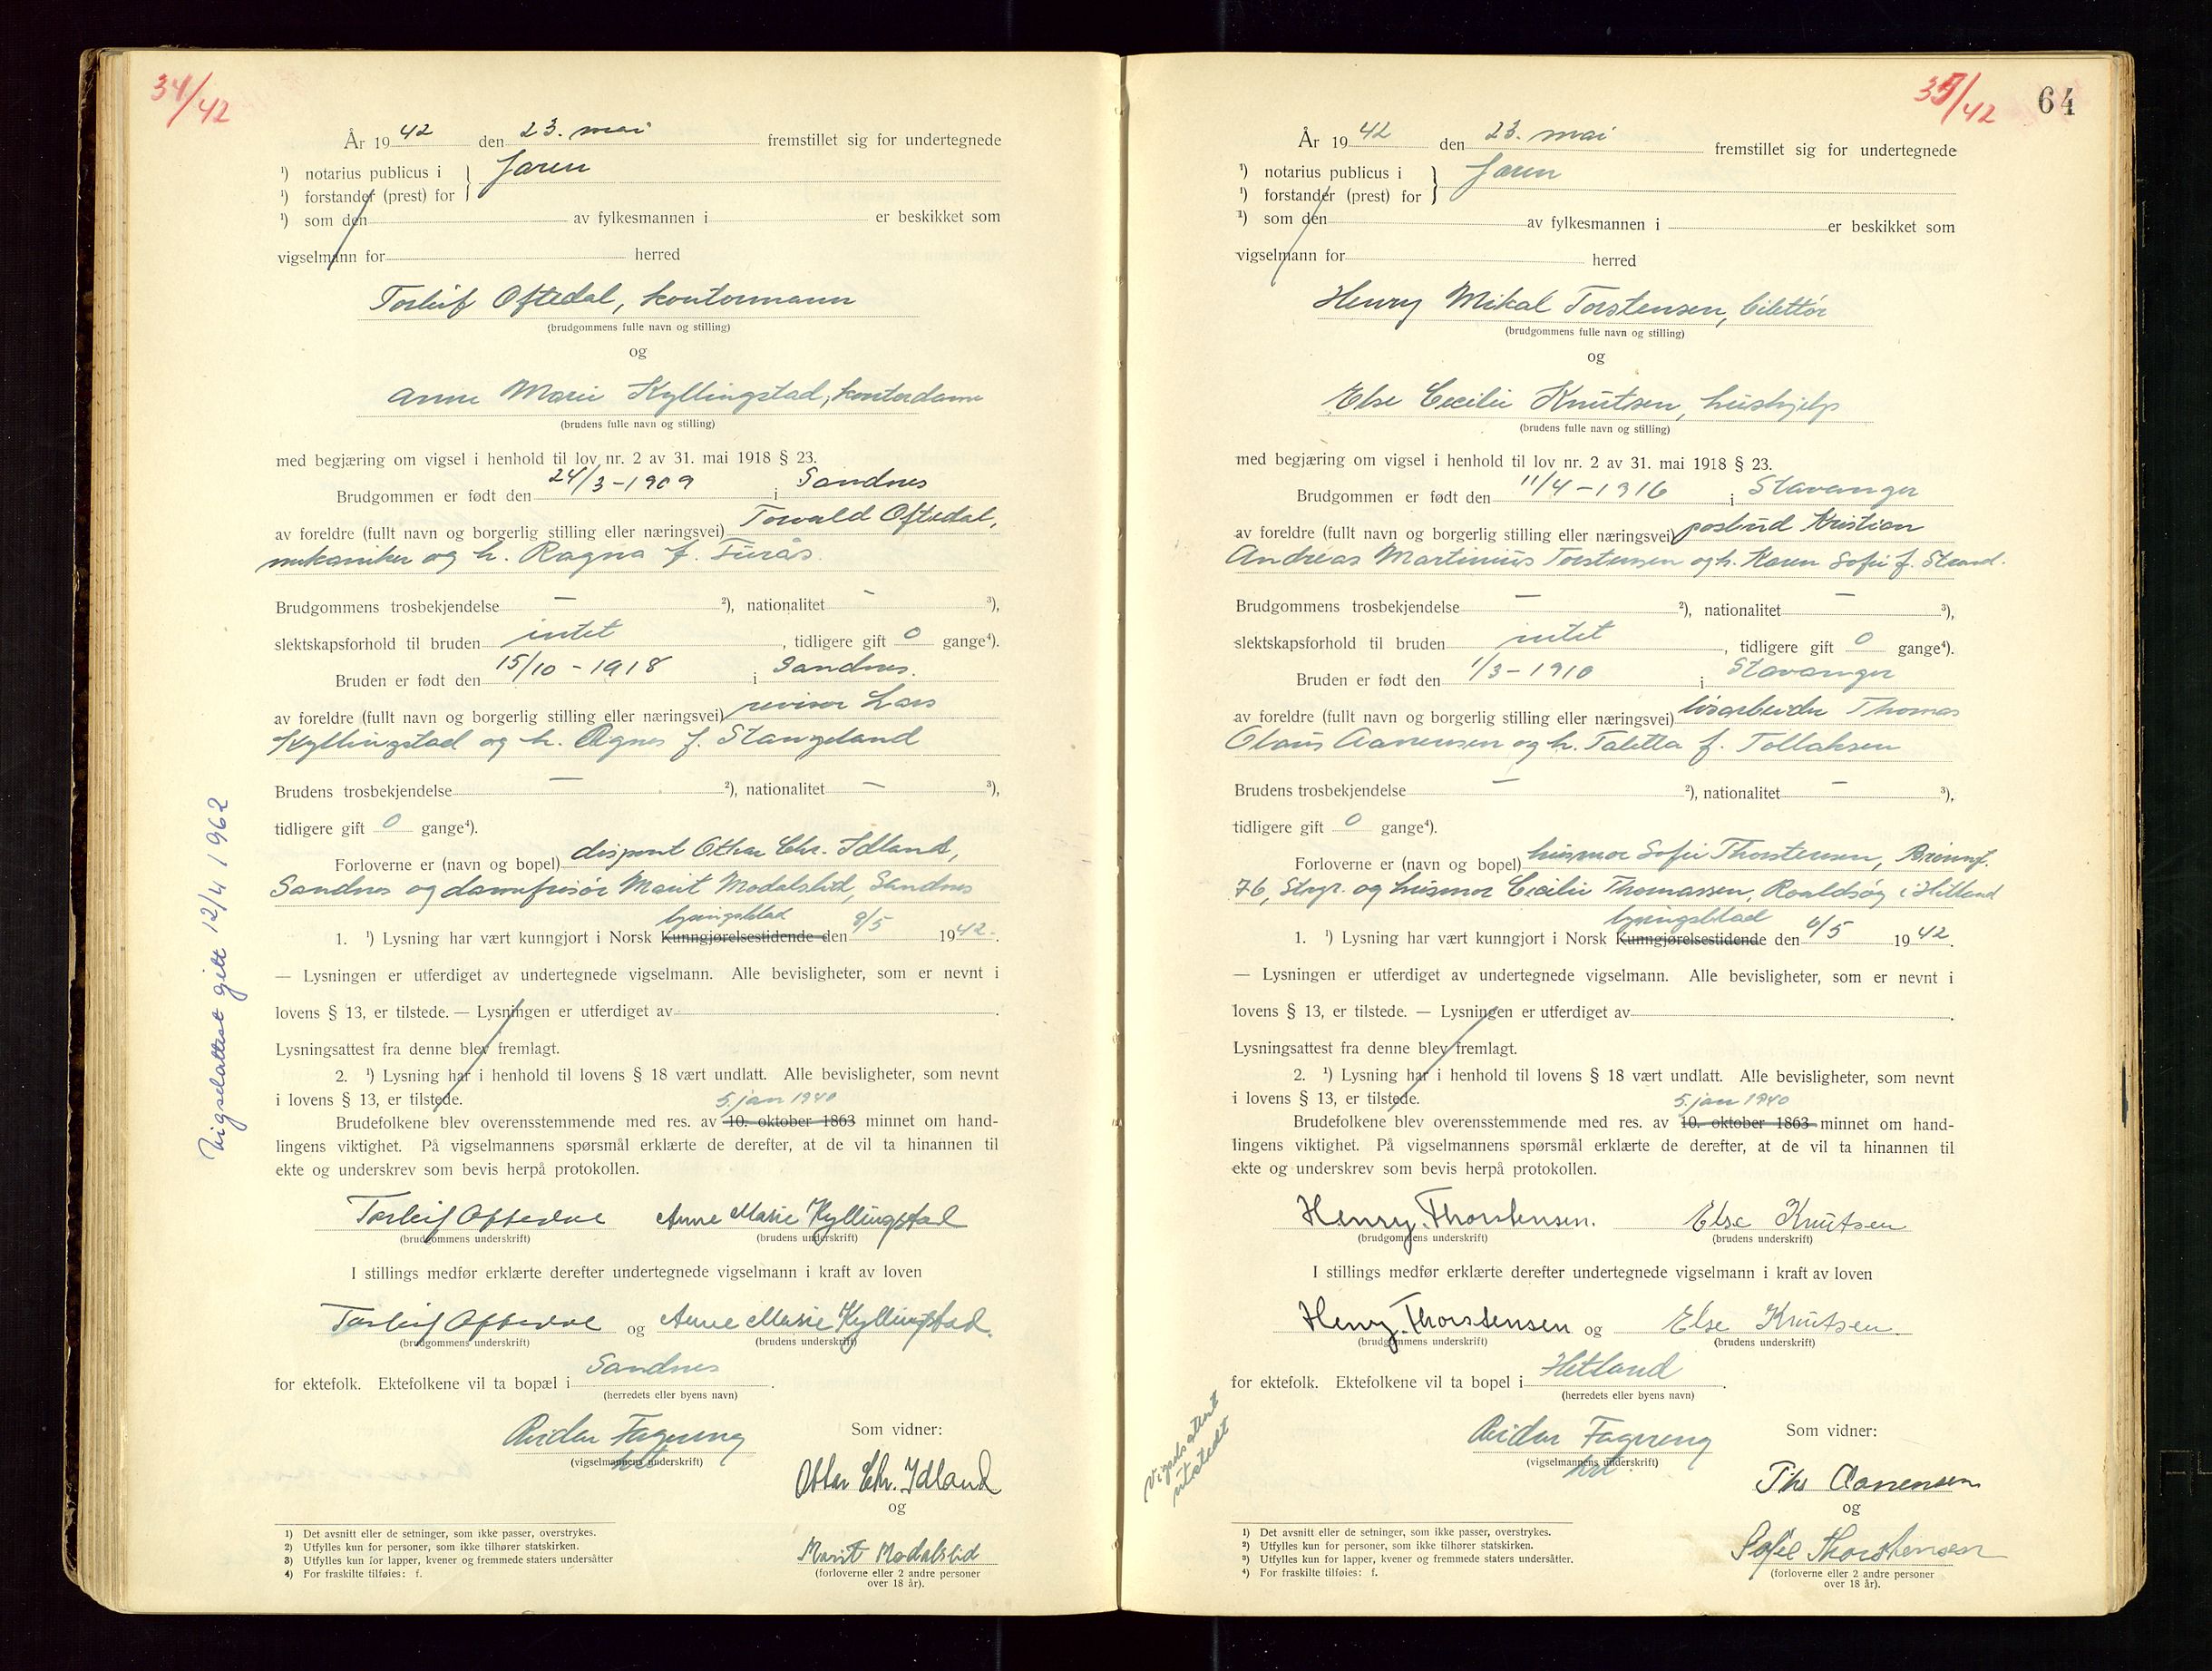 34/42
År 1942 den 23. mai fremstillet sig for undertegnede
¹) notarius publicus i } Jæren
¹) forstander (prest) for
¹) som den av fylkesmannen i er beskikket som
vigselmann for herred
Torleif Oftedal, kontormann
(brudgommens fulle navn og stilling)
og
Anne Marie Kyllingstad, kontordame
(brudens fulle navn og stilling)
med begjæring om vigsel i henhold til lov nr. 2 av 31. mai 1918 § 23.
Brudgommen er født den 24/3-1909 i Sandnes
av foreldre (fullt navn og borgerlig stilling eller næringsvei) Torvald Oftedal,
mekaniker og h. Ragna f. Furås.
Brudgommens trosbekjendelse — ²), nationalitet — ³),
slektskapsforhold til bruden intet, tidligere gift 0 gange⁴).
Bruden er født den 15/10-1918 i Sandnes.
av foreldre (fullt navn og borgerlig stilling eller næringsvei) revisor Lars
Kyllingstad og h. Agnes f. Stangeland
Brudens trosbekjendelse — ²), nationalitet — ³),
tidligere gift 0 gange⁴).
Forloverne er (navn og bopel) dispont Ottar Chr. Idland,
Sandnes og damefrisør Marit Modalslid, Sandnes
lysingsblad
1. ¹) Lysning har vært kunngjort i Norsk Kunngjørelsestidende den 8/5 1942.
— Lysningen er utferdiget av undertegnede vigselmann. Alle bevisligheter, som er nevnt i
lovens § 13, er tilstede. — Lysningen er utferdiget av
Lysningsattest fra denne blev fremlagt.
2. ¹) Lysning har i henhold til lovens § 18 vært undlatt. Alle bevisligheter, som nevnt
i lovens § 13, er tilstede.
5. jan 1940
Brudefolkene blev overensstemmende med res. av 10. oktober 1863 minnet om hand-
lingens viktighet. På vigselmannens spørsmål erklærte de derefter, at de vil ta hinannen til
ekte og underskrev som bevis herpå protokollen.
Torleif Oftedal Anne Marie Kyllingstad
(brudgommens underskrift) (brudens underskrift)
I stillings medfør erklærte derefter undertegnede vigselmann i kraft av loven
Torleif Oftedal og Anne Marie Kyllingstad.
(brudgommens underskrift) (brudens underskrift)
for ektefolk. Ektefolkene vil ta bopæl i Sandnes.
(herredets eller byens navn)
Reidar Fagereng
(vigselmannens underskrift)
Som vidner:
Ottar Chr. Idland
og
Marit Modalslid
(forloverne eller 2 andre personer
over 18 år).
1) Det avsnitt eller de setninger, som ikke passer, overstrykes.
2) Utfylles kun for personer, som ikke tilhører statskirken.
3) Utfylles kun for lapper, kvener og fremmede staters undersåtter
4) For fraskilte tilføies: f.
Vigselattest gitt 12/4 1962
35/42
64
År 1942 den 23. mai fremstillet sig for undertegnede
¹) notarius publicus i } Jæren
¹) forstander (prest) for
¹) som den av fylkesmannen i er beskikket som
vigselmann for herred
Henry Mikal Torstensen, billettør
(brudgommens fulle navn og stilling)
og
Else Cecilie Knutsen, hushjelp
(brudens fulle navn og stilling)
med begjæring om vigsel i henhold til lov nr. 2 av 31. mai 1918 § 23.
Brudgommen er født den 11/4-1916 i Stavanger
av foreldre (fullt navn og borgerlig stilling eller næringsvei) postbud Kristian
Andreas Martinius Torstensen og h. Karen Sofie f. Strand.
Brudgommens trosbekjendelse — ²), nationalitet — ³),
slektskapsforhold til bruden intet, tidligere gift 0 gange⁴).
Bruden er født den 1/3-1910 i Stavanger
av foreldre (fullt navn og borgerlig stilling eller næringsvei) løsarbeider Thomas
Olaus Aanensen og h. Taletta f. Tollaksen
Brudens trosbekjendelse — ²), nationalitet — ³),
tidligere gift 0 gange⁴).
Forloverne er (navn og bopel) husmor Sofie Thorstensen,
76, Stvgr. og husmor Cecilie Thomassen, Roaldsøy i Hetland
lysingsblad
1. ¹) Lysning har vært kunngjort i Norsk Kunngjørelsestidende den 6/5 1942.
— Lysningen er utferdiget av undertegnede vigselmann. Alle bevisligheter, som er nevnt i
lovens § 13, er tilstede. — Lysningen er utferdiget av
Lysningsattest fra denne blev fremlagt.
2. ¹) Lysning har i henhold til lovens § 18 vært undlatt. Alle bevisligheter, som nevnt
i lovens § 13, er tilstede.
5. jan 1940
Brudefolkene blev overensstemmende med res. av 10. oktober 1863 minnet om hand-
lingens viktighet. På vigselmannens spørsmål erklærte de derefter, at de vil ta hinannen til
ekte og underskrev som bevis herpå protokollen.
Henry. Thorstensen. Else Knutsen
(brudgommens underskrift) (brudens underskrift)
I stillings medfør erklærte derefter undertegnede vigselmann i kraft av loven
Henry. Thorstensen og Else Knutsen.
(brudgommens underskrift) (brudens underskrift)
for ektefolk. Ektefolkene vil ta bopel i Hetland.
(herredets eller byens navn)
Reidar Fagereng
(vigselmannens underskrift)
Som vidner:
Ths Aanensen
og
Sofie Thorstensen
(forloverne eller 2 andre personer
over 18 år).
Vigselsattest
utstedt
1) Det avsnitt eller de setninger, som ikke passer, overstrykes.
²) Utfylles kun for personer, som ikke tilhører statskirken.
³) Utfylles kun for lapper, kvener og fremmede staters undersåtter.
⁴) For fraskilte tilføies: f.